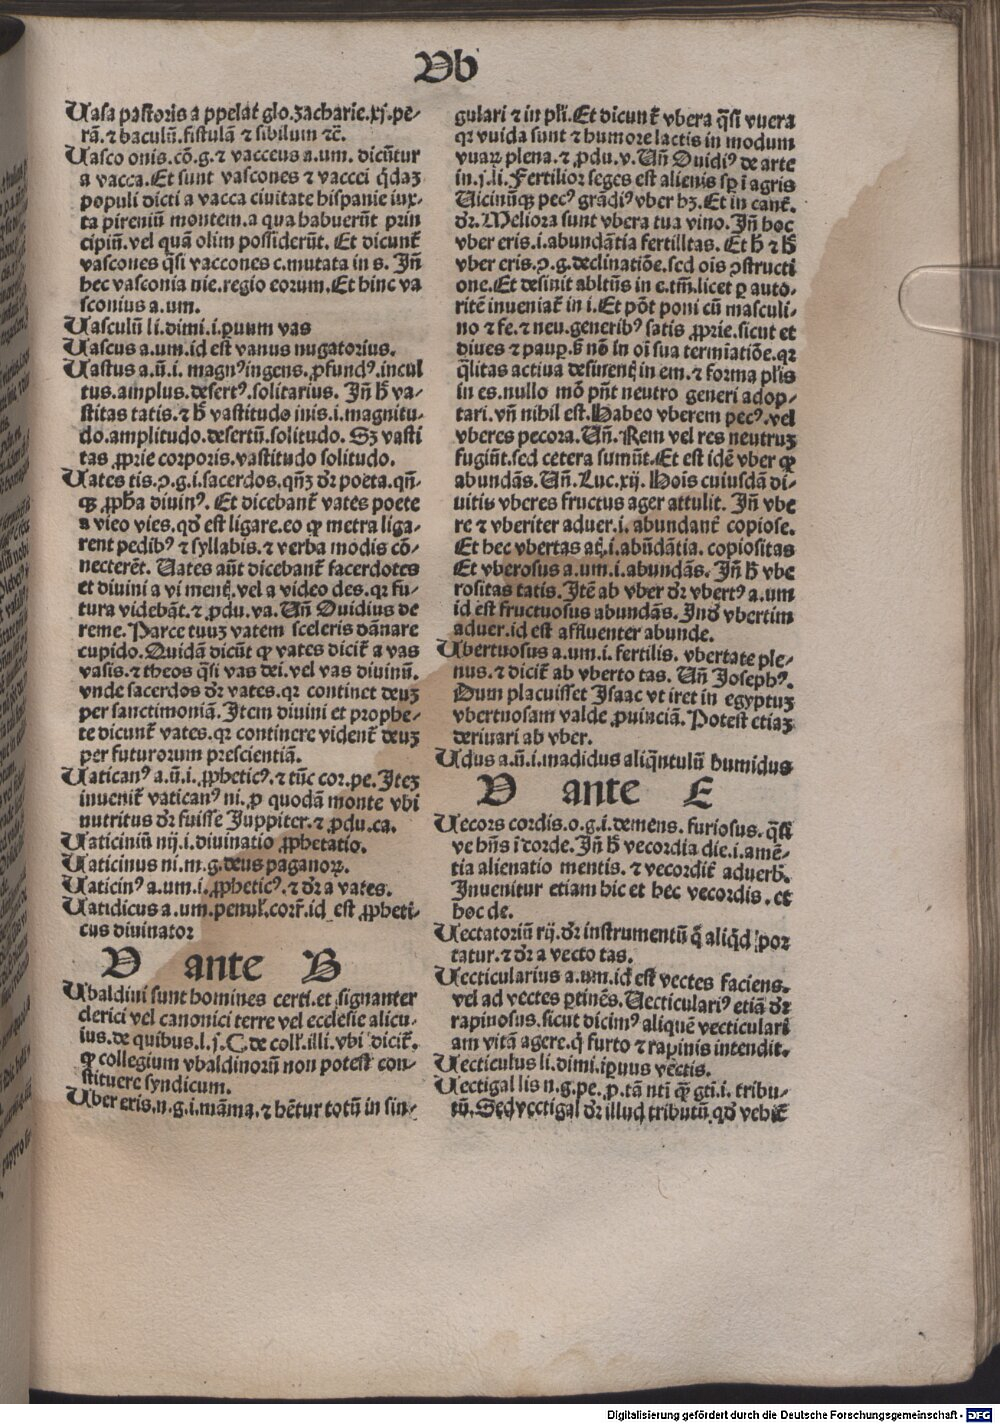 Vb
Uasa pastoris a ppelat̃ glo.zacharie.xj.pe-
rā.⁊ baculū.fistulā ⁊ sibilum ⁊c̄.
Uasco onis.cō.g.⁊ vacceus a.um. dicūtur
a vacca.Et sunt vascones ⁊ vaccei q̄daꝫ
populi dicti a vacca ciuitate hispanie iux-
ta pireniū montem.a qua habuerūt prin
cipiū.vel quā olim possiderūt. Et dicunt̃
vascones q̄si vaccones c.mutata in s. Jñ
hec vasconia nie.regio eorum.Et hinc va
sconius a.um.
Uasculū li.dimi.i.ꝑuum vas
Uascus a.um.id est vanus nugatorius.
Uastus a.ū.i. magnꝰingens.ꝓfundꝰ.incul
tus.amplus.desertꝰ.solitarius. Jñ h̄ va-
stitas tatis.⁊ h̄ vastitudo inis.i.magnitu-
do.amplitudo.desertū.solitudo. Sꝫ vasti
tas ꝓprie corporis.vastitudo solitudo.
Uates tis.ↄ.g.i.sacerdos.qn̄ꝫ dr̄ poeta.qn̄-
qꝫ ꝓpha diuinꝰ. Et dicebant̃ vates poete
a vieo vies.qd̄ est ligare.eo ꝙ metra liga-
rent pedibꝰ ⁊ syllabis.⁊ verba modis cō-
necterēt. Uates aūt dicebant̃ sacerdotes
et diuini a vi mentꝭ.vel a video des.qꝛ fu-
tura videbāt.⁊ ꝓdu.va.Un̄ Ouidius de
reme.Parce tuuꝫ vatem sceleris dānare
cupido.Quidā dicūt ꝙ vates dicit̃ a vas
vasis.⁊ theos q̄si vas dei.vel vas diuinū.
vnde sacerdos dr̄ vates.qꝛ continet deuꝫ
per sanctimoniā.Jtem diuini et prophe-
te dicunt̃ vates.qꝛ continere vident̃ deuꝫ
per futurorum prescientiā.
Uaticanꝰ a.ū.i.ꝓpheticꝰ.⁊ tūc cor.pe.Jteꝫ
inuenit̃ vaticanꝰ ni.ꝓ quodā monte vbi
nutritus dr̄ fuisse Juppiter.⁊ ꝓdu.ca.
Uaticiniū nij.i.diuinatio ꝓphetatio.
Uaticinus ni.m.g.deus paganoꝝ.
Uaticinꝰ a.um.i.ꝓpheticꝰ.⁊ dr̄ a vates.
Uatidicus a.um.penul̃.corr̃.id est ꝓpheti-
cus diuinator
V ante B
Ubaldini sunt homines certi.et signanter
clerici vel canonici terre vel ecclesie alicu-
ius.de quibus.l.j.C.de coll̃.illi.vbi dicit̃.
ꝙ collegium vbaldinorū non potest con-
stituere syndicum.
Uber eris.n.g.i.māma.⁊ hētur totū in sin-
gulari ⁊ in pl̃i.Et dicunt̃ vbera q̄si vuera
qꝛ vuida sunt ⁊ humore lactis in modum
vuaꝝ plena.⁊ ꝓdu.v.Un̄ Ouidiꝰ de arte
in.j.li.Fertilior seges est alienis sꝑ ī agris
Uicinūqꝫ pecꝰ grādiꝰ vber hꝫ.Et in cant̃.
dr̄.Meliora sunt vbera tua vino.Jñ hoc
vber eris.i.abundātia fertilltas. Et h̄ ⁊ h̄
vber eris.ↄ.g.declinatiōe.sed ois ↄstructi
one.Et desinit abltūs in e.tm̄.licet ꝑ auto-
ritē inueniat̃ in i.Et pōt poni cū masculi-
no ⁊ fe.⁊ neu.generibꝰ satis ꝓprie.sicut et
diues ⁊ pauꝑ.s̄ nō in oi sua termiatiōe.qꝛ
q̄litas actiua desinentꝭ in em.⁊ forma pl̃is
in es.nullo mō pn̄t neutro generi adop-
tari.vn̄ nihil est.Habeo vberem pecꝰ.vel
vberes pecora.Un̄.Rem vel res neutruꝫ
fugiūt.sed cetera sumūt.Et est idē vber ꝙ
abundās.Un̄.Luc.xij.Hois cuiusdā di-
uitis vberes fructus ager attulit. Jñ vbe
re ⁊ vberiter aduer.i. abundant̃ copiose.
Et hec vbertas atꝭ.i.abūdātia. copiositas
Et vberosus a.um.i.abundās. Jñ h̄ vbe
rositas tatis.Jtē ab vber dr̄ vbertꝰ a.um
id est fructuosus abundās.Jnd̄ vbertim
aduer.id est affluenter abunde.
Ubertuosus a.um.i.fertilis. vbertate ple-
nus.⁊ dicit̃ ab vberto tas. Un̄ Josephꝰ.
Dum placuisset Jsaac vt iret in egyptuꝫ
vbertuosam valde ꝓuinciā.Potest etiaꝫ
deriuari ab vber.
Udus a.ū.i.madidus aliq̄ntulū humidus
V ante E
Uecors cordis.o.g.i.demens.furiosus.q̄si
ve hn̄s ī corde.Jñ h̄ vecordia die.i.amē-
tia alienatio mentis. ⁊ vecordit̃ aduerb̄.
Jnuenitur etiam hic et hec vecordis. et
hoc de.
Uectatoriū rij.dr̄ instrumentū q̄ aliqd̄ por
tatur.⁊ dr̄ a vecto tas.
Uecticularius a.um.id est vectes faciens.
vel ad vectes ꝑtinēs.Uecticulariꝰ etiā dr̄
rapinosus.sicut dicimꝰ aliquē vecticulari
am vitā agere.q̄ furto ⁊ rapinis intendit.
Uecticulus li.dimi.iꝑuus vectis.
Uectigal lis n.g.pe.ꝓ.tā nti ꝙ̄ gti.i. tribu-
tū. Sed vectigal dr̄ illud tributū qd̄ vehit̃
Digitalisierung gefördert durch die Deutsche Forschungsgemeinschaft - DFG